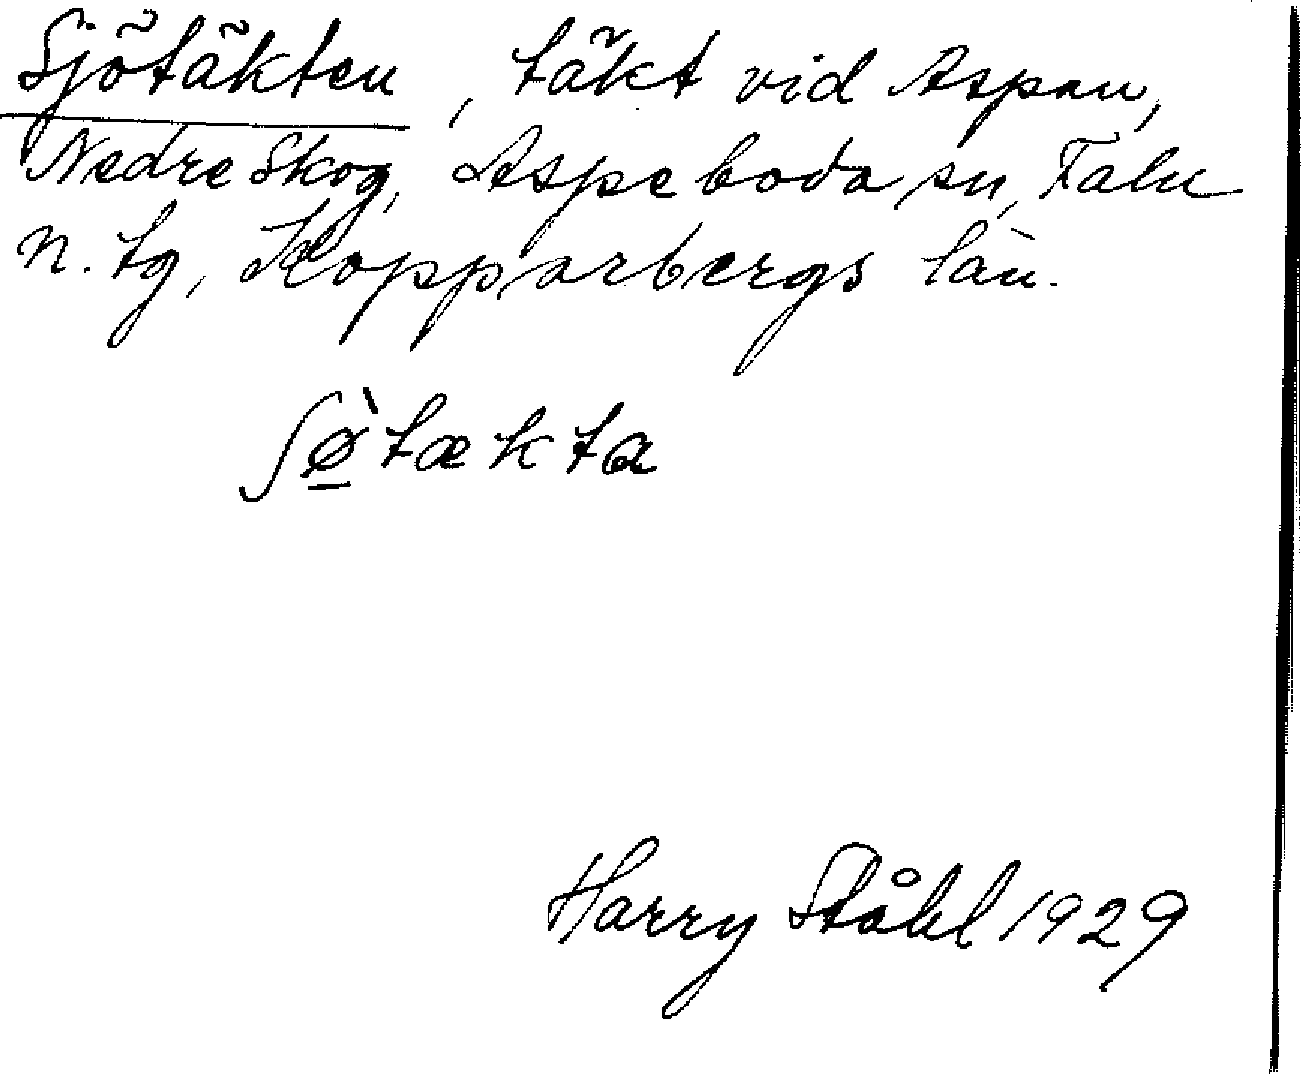 Sjötäkten, täkt vid Aspan,
Nedre Skog, Aspeboda sn, Falu
N. tg, Kopparbergs län.
ʃø̠̀tækta
Harry Ståhl 1929